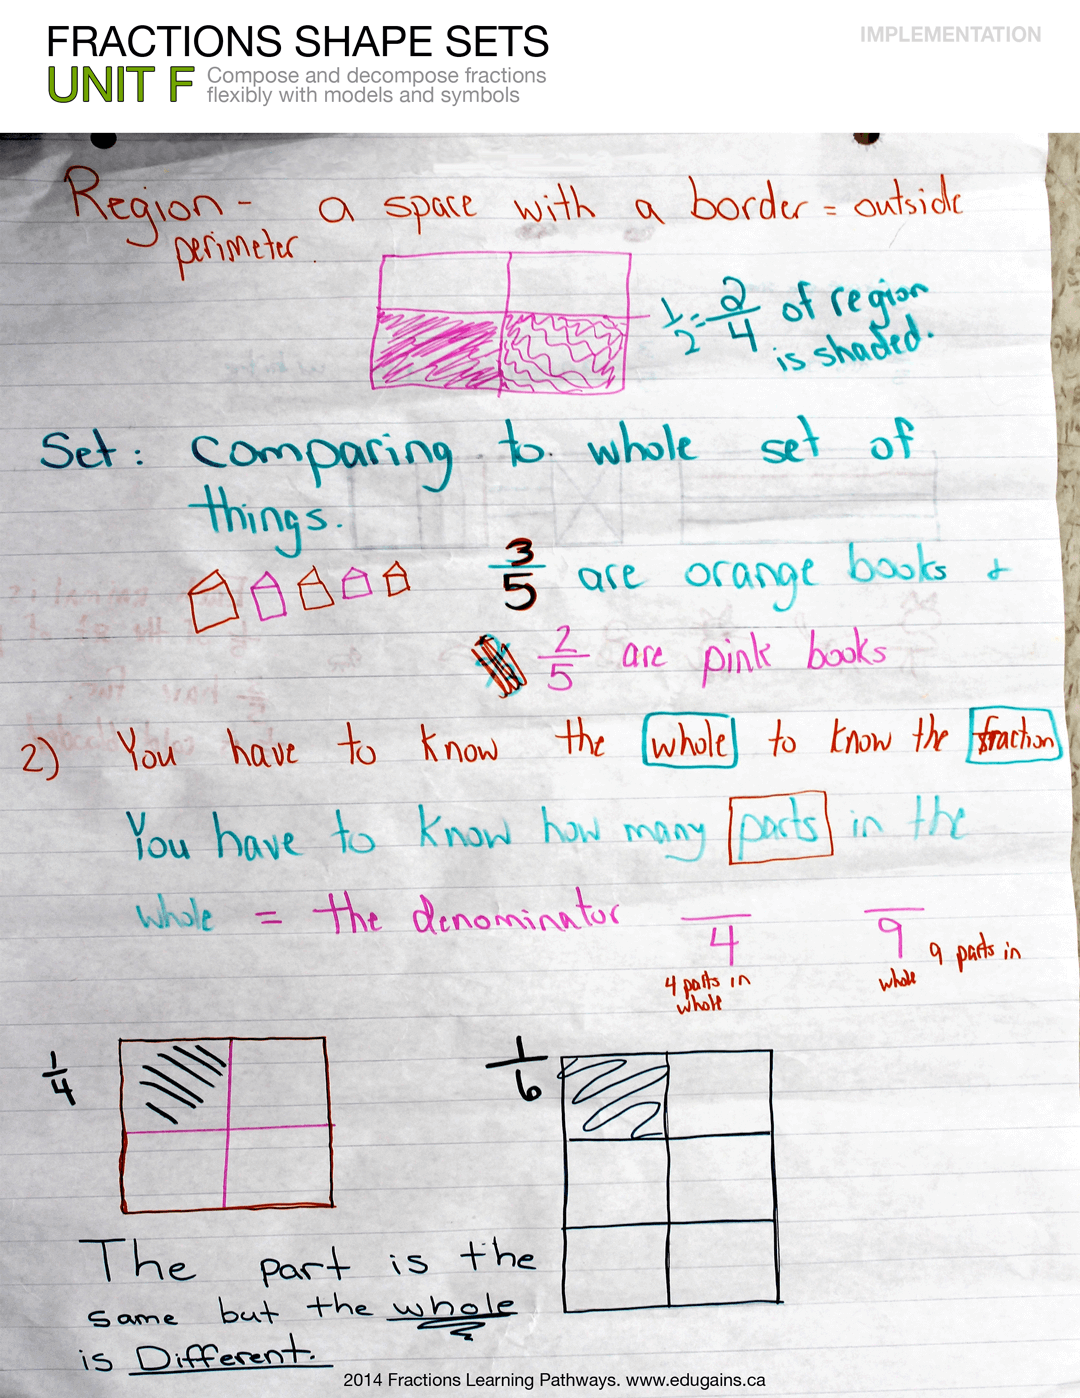 FRACTIONS SHAPE SETS
IMPLEMENTATION
UNIT F
Compose and decompose fractions
flexibly with models and symbols
Region - a space with a border = outside
perimeter.
1/2 = 2/4 of region
is shaded.
Set: Comparing to whole set of
things.
3/5 are orange books +
2/5 are pink books
2) You have to know the whole to know the fraction
You have to know how many parts in the
whole = the denominator
4
9
9 parts in
4 parts in
whole
whole
1/4
1/6
The part is the
same but the whole
is Different.
2014 Fractions Learning Pathways. www.edugains.ca